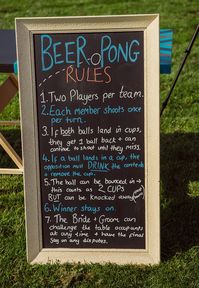 BEER PONG
RULES
1. Two Players per team.
2. Each member shoots once
per turn.
3. If both balls land in cups,
they get 1 ball back & can
continue to shoot until they miss.
4. If a ball lands in a cup, the
opposition must DRINK the contents
& remove the cup.
5. The ball can be bounced in →
this counts as 2 CUPS
BUT can be knocked away!
6. Winner stays on.
7. The Bride & Groom can
challenge the table occupants
at any time & have the final
say on any disputes.